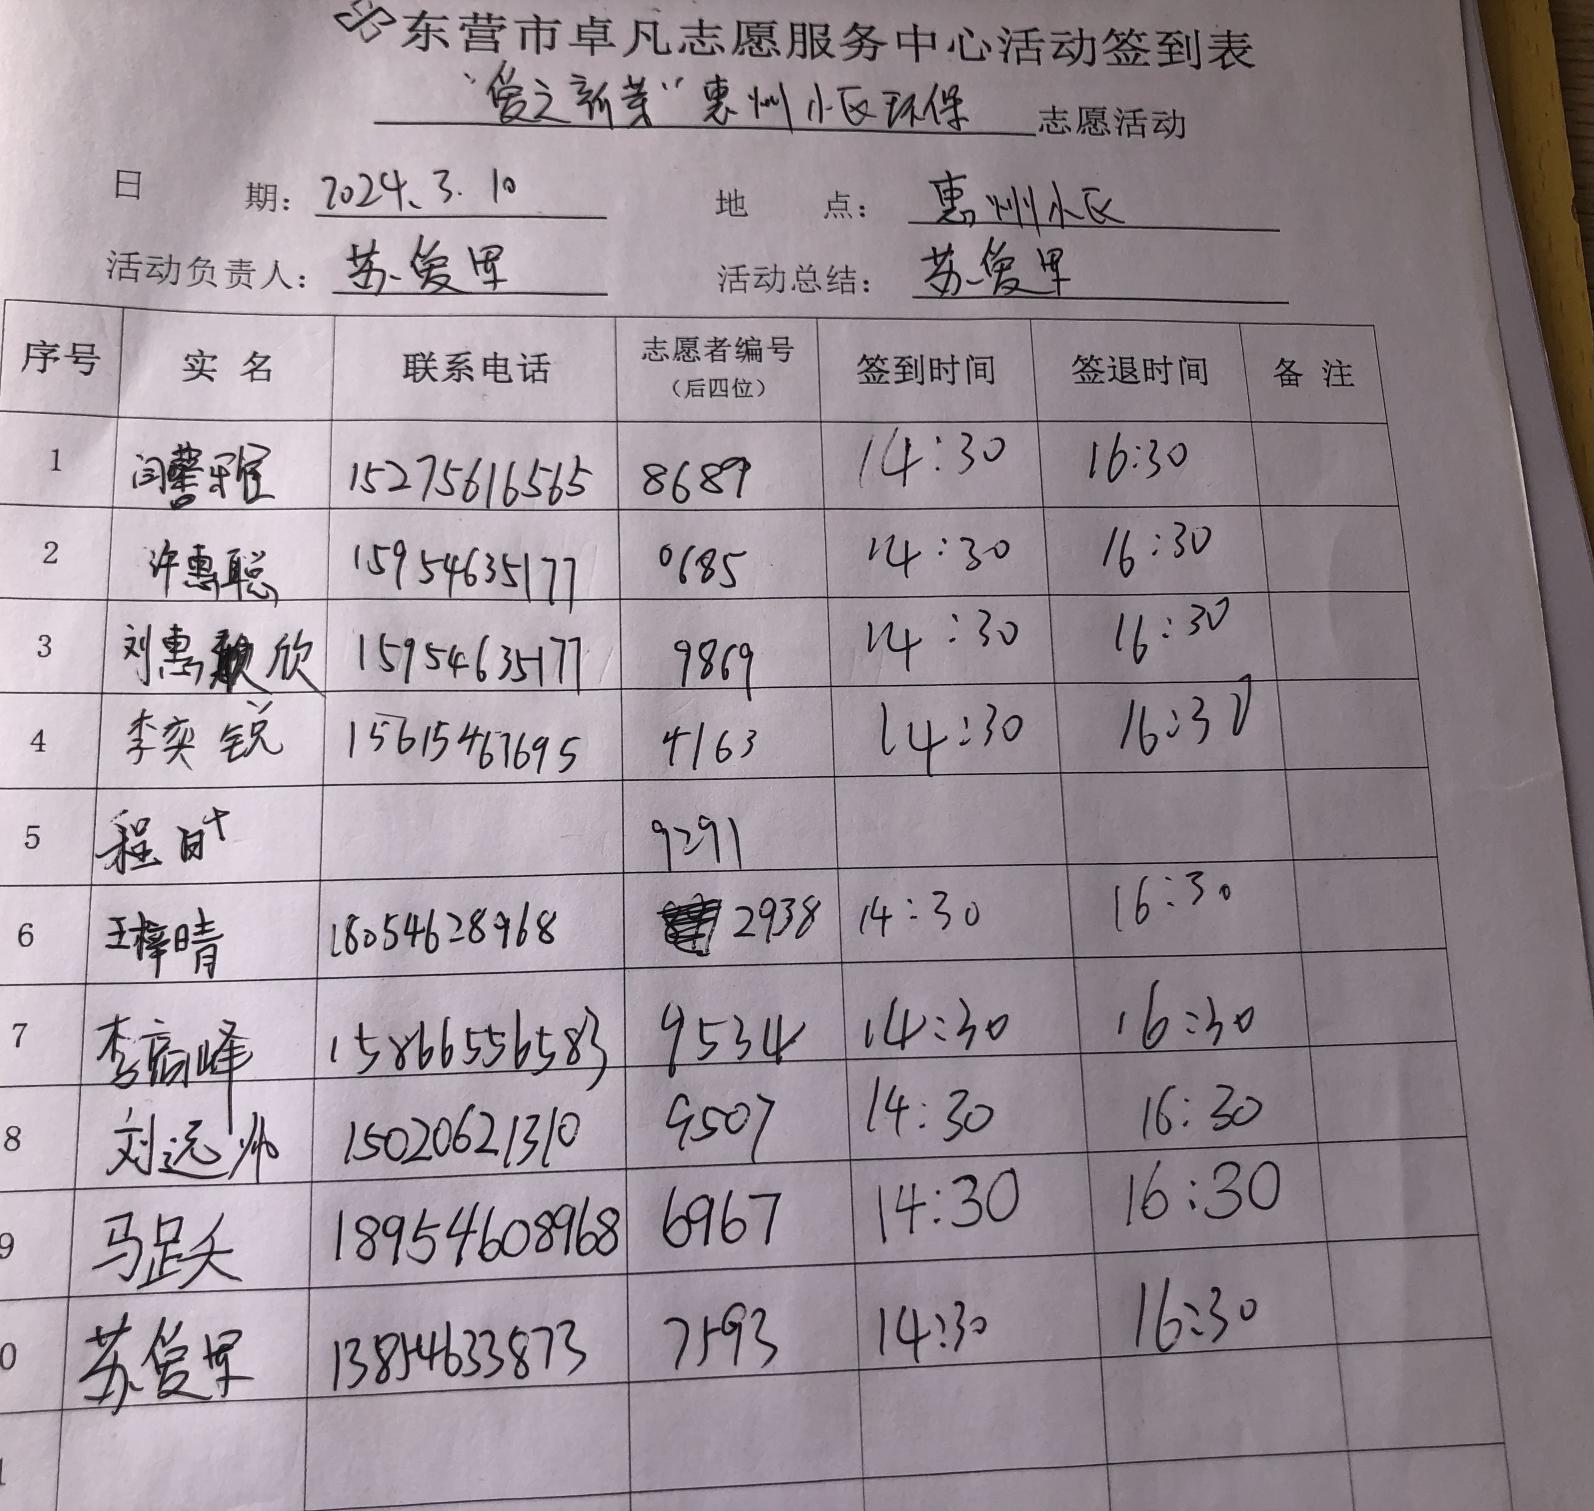 东营市卓凡志愿服务中心活动签到表
“爱之新芽”惠州小区环保 志愿活动
日 期：2024.3.10 地 点：惠州小区
活动负责人：苏爱军 活动总结：苏爱军
序号 实名 联系电话 志愿者编号（后四位） 签到时间 签退时间 备注
1 闫 15275616565 8689 14:30 16:30
2 许惠聪 15954635177 0685 14:30 16:30
3 刘惠欣 15954635177 9869 14:30 16:30
4 李奕锐 15615467695 4163 14:30 16:30
5 程 9291
6 王梓晴 18054628968 2938 14:30 16:30
7 李高峰 15866556583 9534 14:30 16:30
8 刘远帅 15020621310 9507 14:30 16:30
9 马跃 18954608968 6967 14:30 16:30
0 苏爱军 13854633873 7593 14:30 16:30